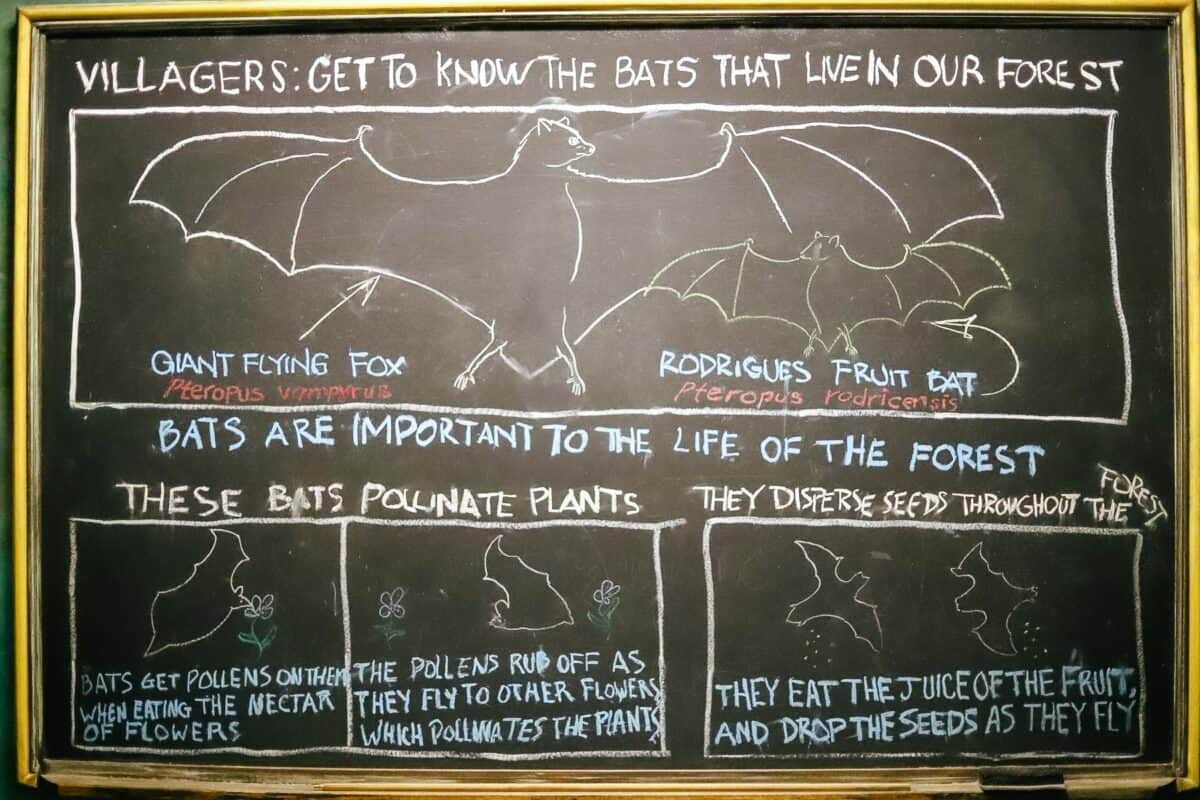 VILLAGERS: GET TO KNOW THE BATS THAT LIVE IN OUR FOREST
GIANT FLYING FOX
Pteropus vampyrus
RODRIGUES FRUIT BAT
Pteropus rodricensis
BATS ARE IMPORTANT TO THE LIFE OF THE FOREST
THESE BATS POLLINATE PLANTS
BATS GET POLLENS ON THEM
WHEN EATING THE NECTAR
OF FLOWERS
THE POLLENS RUB OFF AS
THEY FLY TO OTHER FLOWERS
WHICH POLLINATES THE PLANTS
THEY DISPERSE SEEDS THROUGHOUT THE FOREST
THEY EAT THE JUICE OF THE FRUIT,
AND DROP THE SEEDS AS THEY FLY